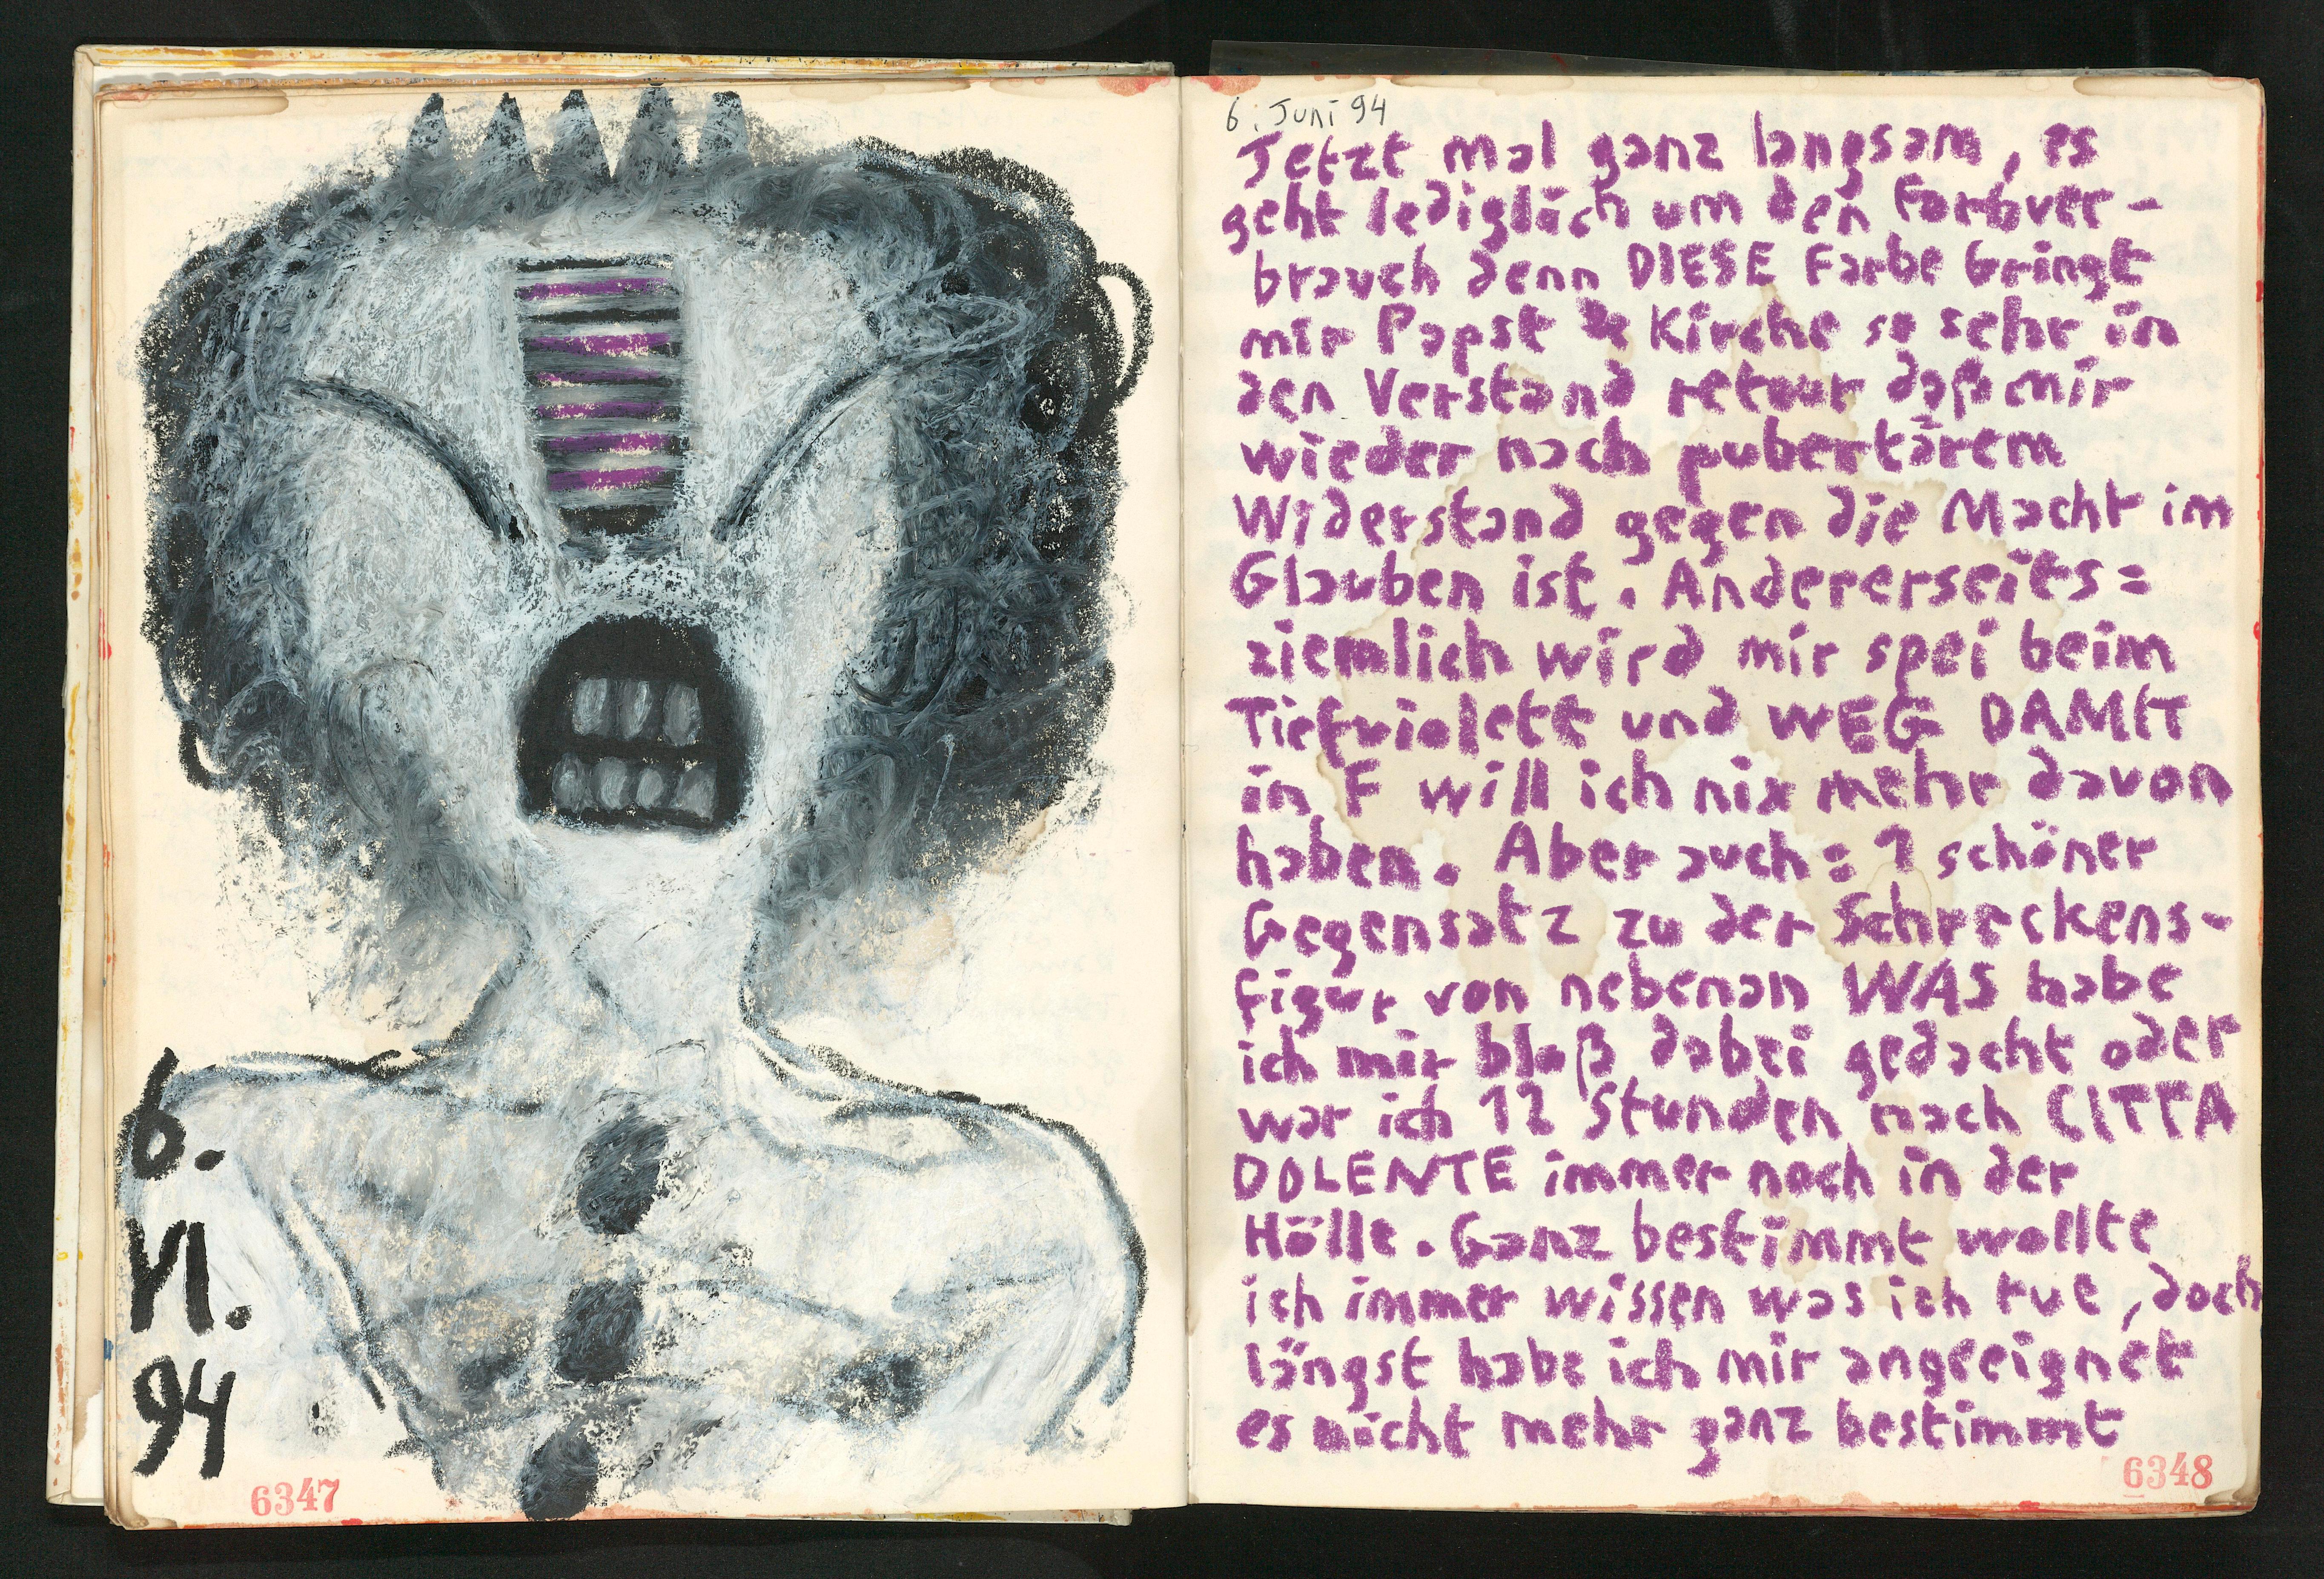 6.
VI.
94
6347
6. Juni 94
Jetzt mal ganz langsam, es
geht lediglich um den Farbver-
brauch denn DIESE Farbe bringt
mir Papst & Kirche so sehr in
den Verstand retour daß mir
wieder nach pubertärem
Widerstand gegen die Macht im
Glauben ist. Andererseits=
ziemlich wird mir spei beim
Tiefviolett und WEG DAMIT
in F will ich nix mehr davon
haben. Aber auch: 1 schöner
Gegensatz zu der Schreckens-
figur von nebenan WAS habe
ich mir bloß dabei gedacht oder
war ich 12 Stunden nach CITTA
DOLENTE immer noch in der
Hölle. Ganz bestimmt wollte
ich immer wissen was ich tue, doch
längst habe ich mir angeeignet
es nicht mehr ganz bestimmt
6348